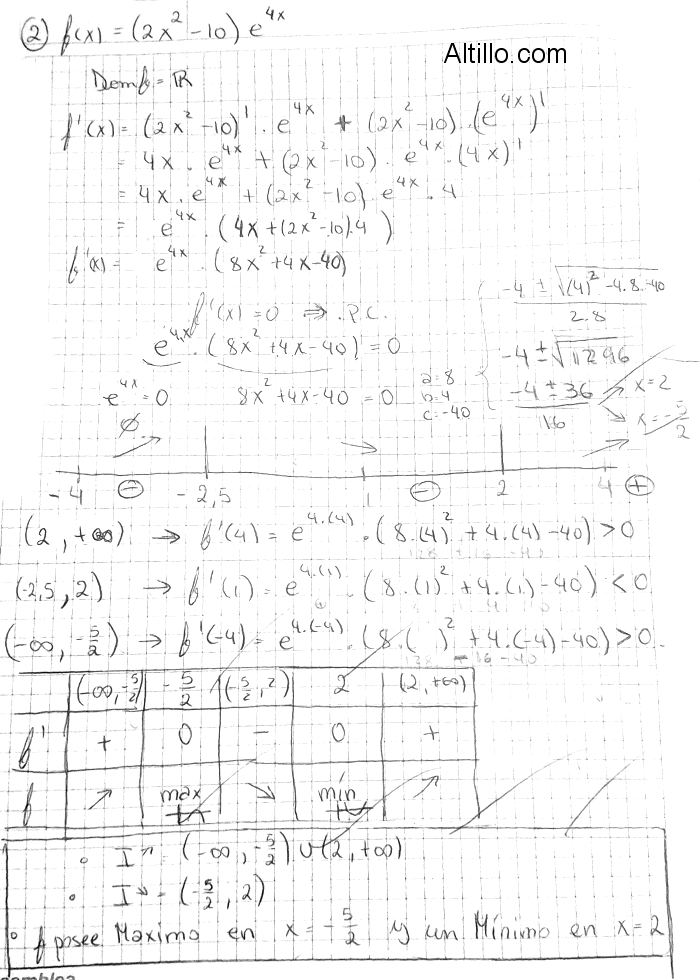 ② f(x) = (2x² - 10) e^4x
Altillo.com
Domf = ℝ
f'(x) = (2x² - 10)' . e^4x + (2x² - 10) . (e^4x)'
= 4x . e^4x + (2x² - 10) . e^4x . (4x)'
= 4x . e^4x + (2x² - 10) e^4x . 4
= e^4x . (4x + (2x² - 10) . 4)
f'(x) = e^4x . (8x² + 4x - 40)
f'(x) = 0 ⇒ P.C.
e^4x . (8x² + 4x - 40) = 0
e^4x = 0 8x² + 4x - 40 = 0
∅
a=8
b=4
c=-40
-4 ± √(4)² - 4.8.-40
2.8
-4 ± √1296
-4 ± 36
16
x = 2
x = -5/2
-4 ⊖ -2,5 1 ⊖ 2 4 ⊕
(2, +∞) → f'(4) = e^4.(4) . (8.(4)² + 4.(4) - 40) > 0
(-2,5, 2) → f'(1) = e^4.(1) . (8.(1)² + 4.(1) - 40) < 0
(-∞, -5/2) → f'(-4) = e^4.(-4) . (8.( )² + 4.(-4) - 40) > 0.
(-∞, -5/2) -5/2 (-5/2, 2) 2 (2, +∞)
f' + 0 - 0 +
f ↗ max ↘ mín ↗
• I↗ = (-∞, -5/2) ∪ (2, +∞)
• I↘ = (-5/2, 2)
• f posee Maximo en x = -5/2 y un Mínimo en x = 2